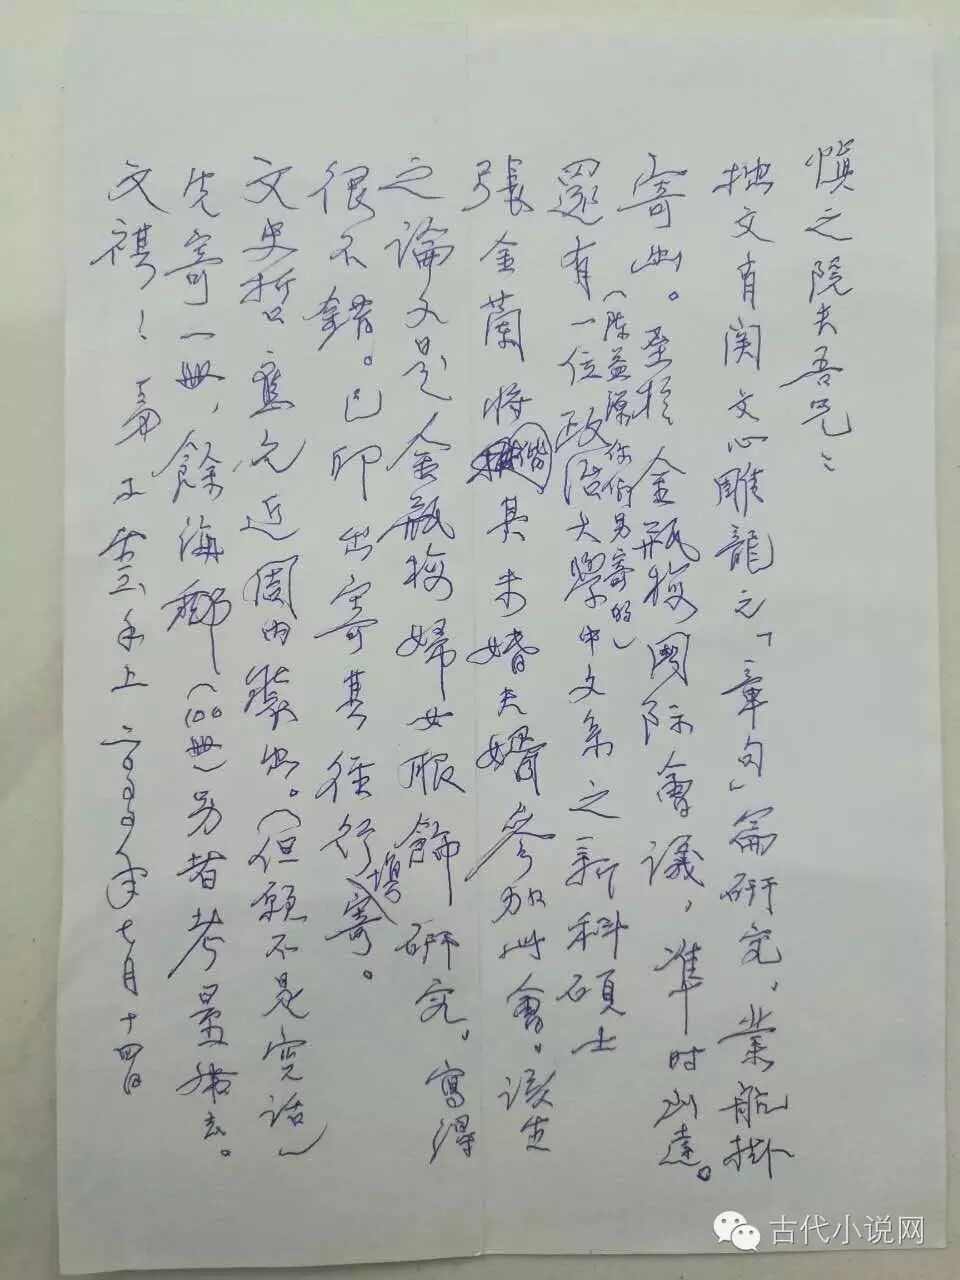 慎之院夫吾兄：
拙文有関文心雕龍之「章句」篇研究，業航掛
寄出。至於金瓶梅國际會議，準时必達。
（陈益源你們另寄的）
還有一位政治大學中文系之新科碩士
張金蘭將偕其未婚夫婿參加此會。該生
之論文是金瓶梅婦女服飾研究。寫得
很不錯。已印出寄其徑行填寄。
文史哲應允近周內裝出。（但願不是空话）
先寄一册，餘海郵（100册）另者考量帶去。
文祺！弟 手上 二〇〇〇年七月十四日
古代小说网